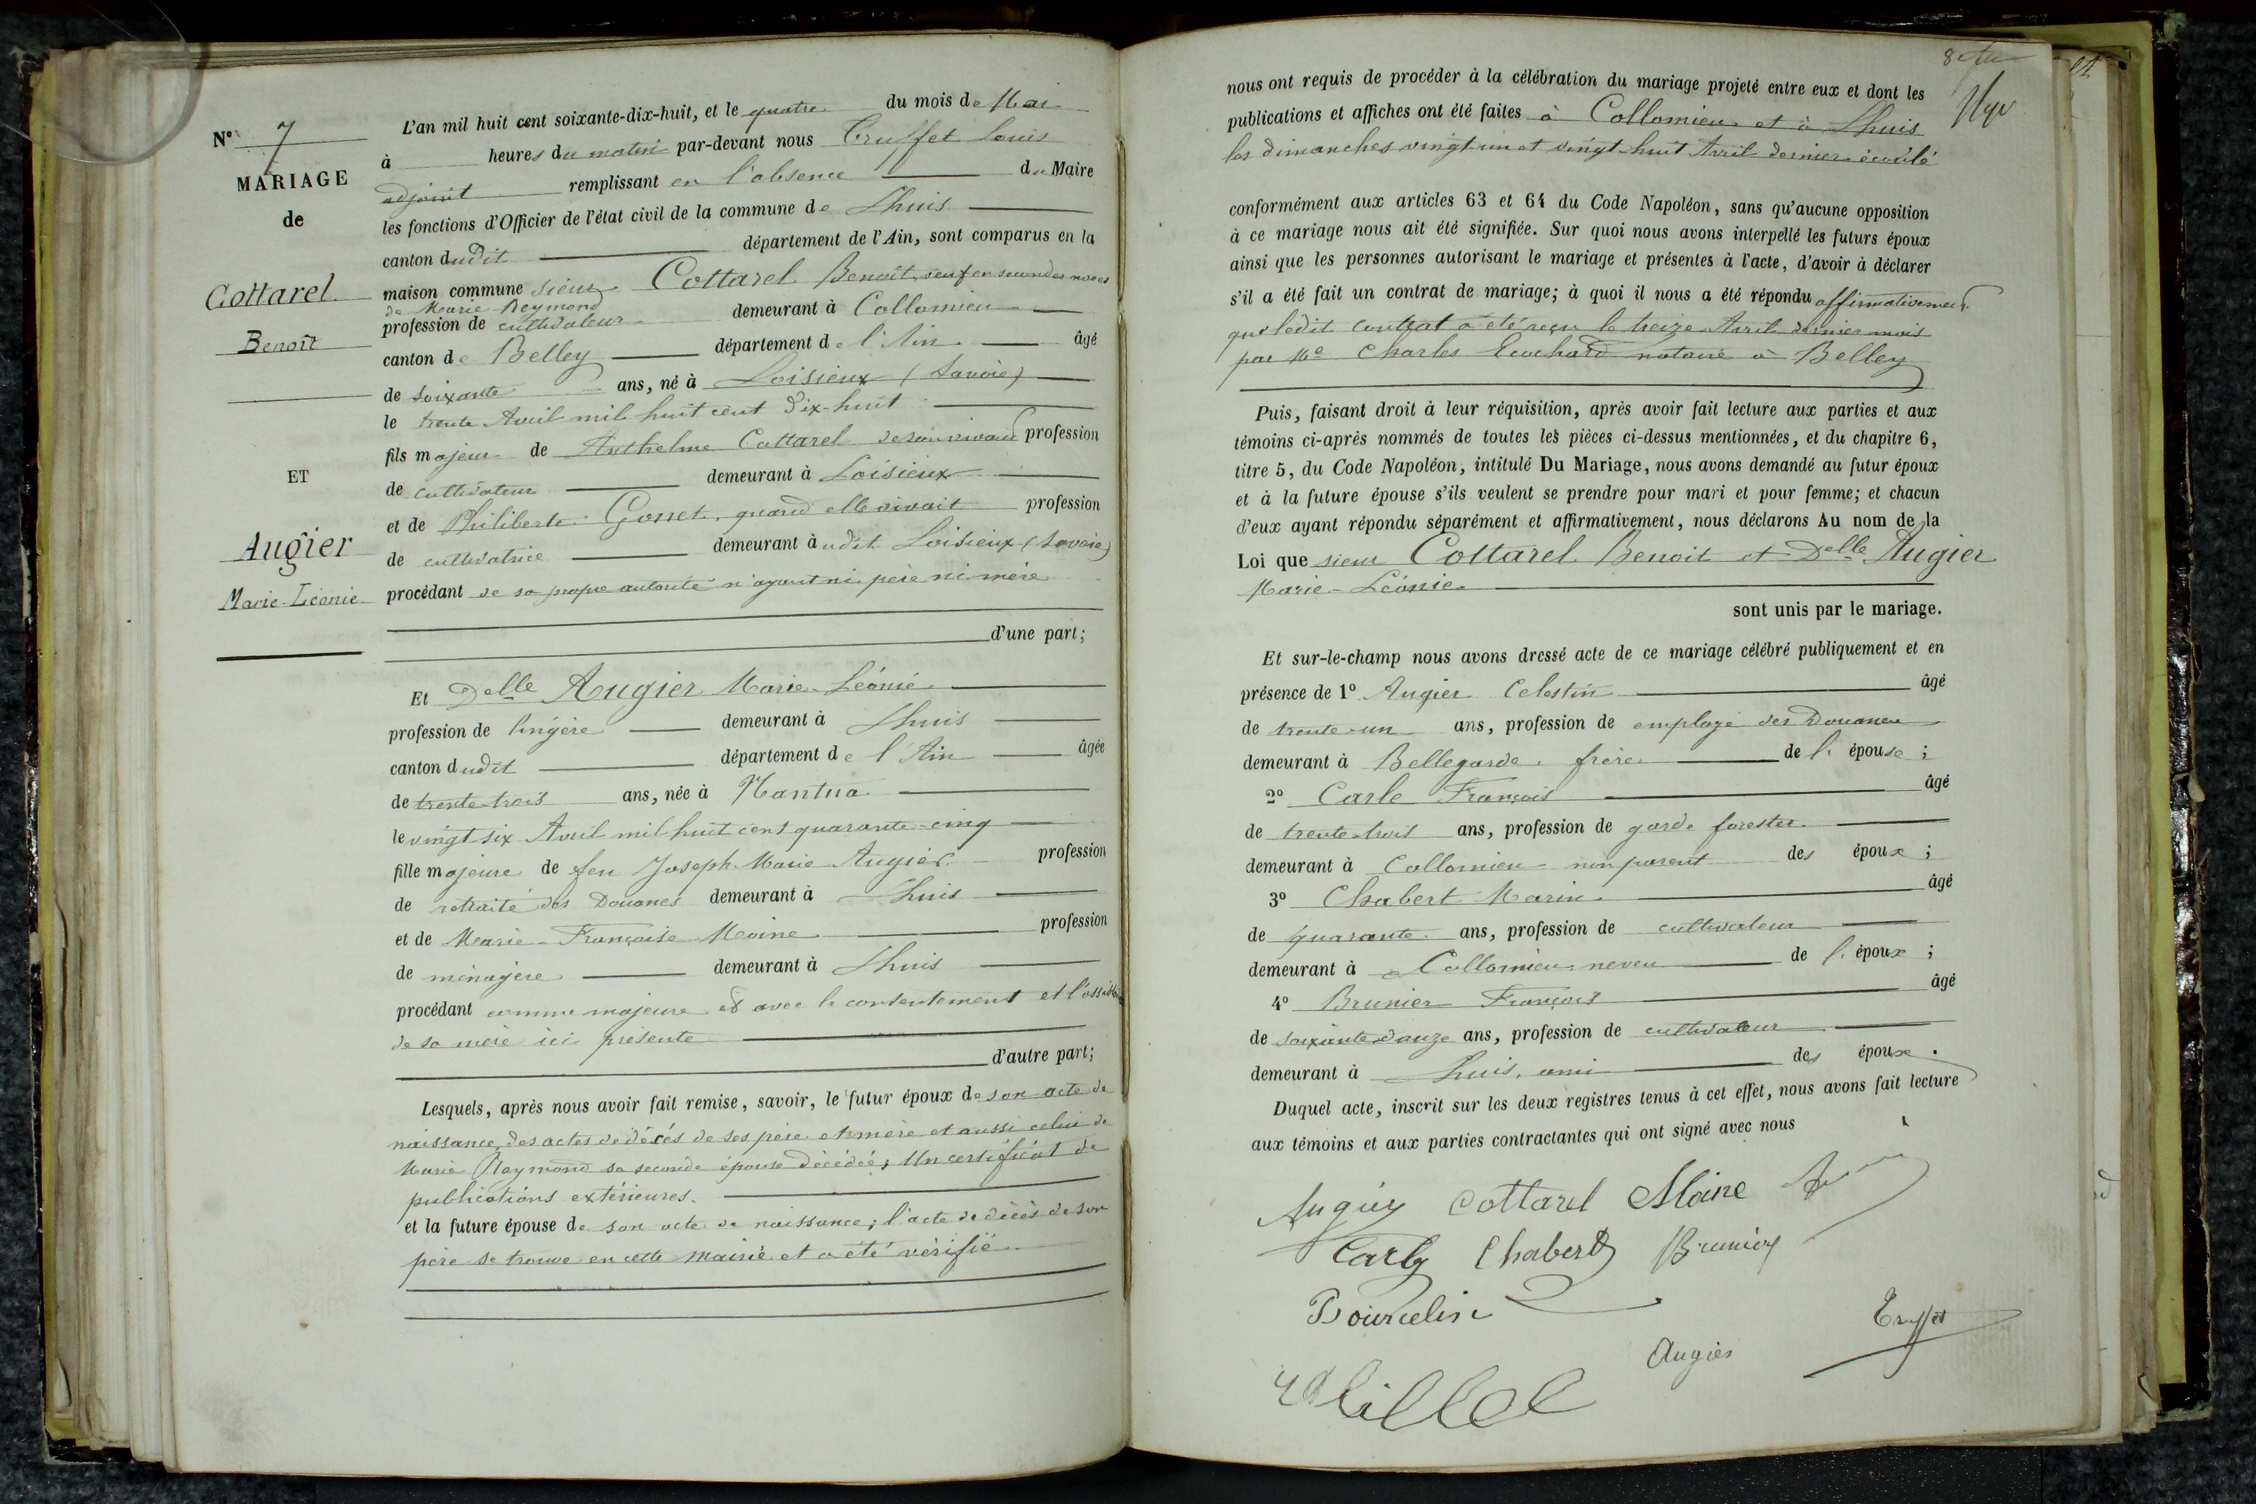 N° 7
MARIAGE
de
Cottarel
Benoît
ET
Augier
Marie-Léonie
L'an mil huit cent soixante-dix-huit, et le quatre du mois de Mai
à heures du matin par-devant nous Truffet Louis
adjoint remplissant en l'absence du Maire
les fonctions d'Officier de l'état civil de la commune de Lhuis
canton dudit département de l'Ain, sont comparus en la
maison commune sieur Cottarel Benoît, veuf en secondes noces
de Marie Reymond
profession de cultivateur demeurant à Collomieu
canton de Belley département de l'Ain âgé
de soixante ans, né à Loisieux (Savoie)
le trente Avril mil huit cent dix-huit
fils majeur de Anthelme Cottarel de son vivant profession
de cultivateur demeurant à Loisieux
et de Philiberte Gonnet, quand elle vivait profession
de cultivatrice demeurant à udit Loisieux (Savoie)
procédant de sa propre autorité n'ayant ni père ni mère
d'une part;
Et Delle Augier Marie-Léonie
profession de lingère demeurant à Lhuis
canton dudit département de l'Ain âgée
de trente-trois ans, née à Nantua
le vingt six Avril mil huit cent quarante-cinq
fille majeure de feu Joseph-Marie Augier profession
de retraité des Douanes demeurant à Lhuis
et de Marie-Françoise Moine profession
de ménagère demeurant à Lhuis
procédant comme majeure et avec le consentement et l'assistance
de sa mère ici présente
d'autre part;
Lesquels, après nous avoir fait remise, savoir, le futur époux de son acte de
naissance, des actes de décés de ses père et mère et aussi celui de
Marie Reymond sa seconde épouse décédée; Un certificat de
publications extérieures.
et la future épouse de son acte de naissance; l'acte de décès de son
père se trouve en cette Mairie et a été vérifié
nous ont requis de procéder à la célébration du mariage projeté entre eux et dont les
publications et affiches ont été faites à Collomieu et à Lhuis
les dimanches vingt-un et vingt-huit Avril dernier écoulé
conformément aux articles 63 et 64 du Code Napoléon, sans qu'aucune opposition
à ce mariage nous ait été signifiée. Sur quoi nous avons interpellé les futurs époux
ainsi que les personnes autorisant le mariage et présentes à l'acte, d'avoir à déclarer
s'il a été fait un contrat de mariage; à quoi il nous a été répondu affirmativement
que ledit contrat a été reçu le treize Avril dernier mois
par Me Charles notaire à Belley
Puis, faisant droit à leur réquisition, après avoir fait lecture aux parties et aux
témoins ci-après nommés de toutes les pièces ci-dessus mentionnées, et du chapitre 6,
titre 5, du Code Napoléon, intitulé Du Mariage, nous avons demandé au futur époux
et à la future épouse s'ils veulent se prendre pour mari et pour femme; et chacun
d'eux ayant répondu séparément et affirmativement, nous déclarons Au nom de la
Loi que sieur Cottarel Benoit et Delle Augier
Marie-Léonie
sont unis par le mariage.
Et sur-le-champ nous avons dressé acte de ce mariage célébré publiquement et en
présence de 1° Augier Celestin âgé
de trente-un ans, profession de employé des Douanes
demeurant à Bellegarde, frère de l'épouse;
2° Carle François âgé
de trente-trois ans, profession de garde forestier
demeurant à Collomieu non parent des époux;
3° Chabert Marin âgé
de quarante ans, profession de cultivateur
demeurant à Collomieu neveu de l'époux;
4° Brunier François âgé
de soixante-douze ans, profession de cultivateur
demeurant à Lhuis, ami des époux.
Duquel acte, inscrit sur les deux registres tenus à cet effet, nous avons fait lecture
aux témoins et aux parties contractantes qui ont signé avec nous
Augier Cottarel Moine
Carle Chabert Brunier
Bourcelin
Truffet
Augier